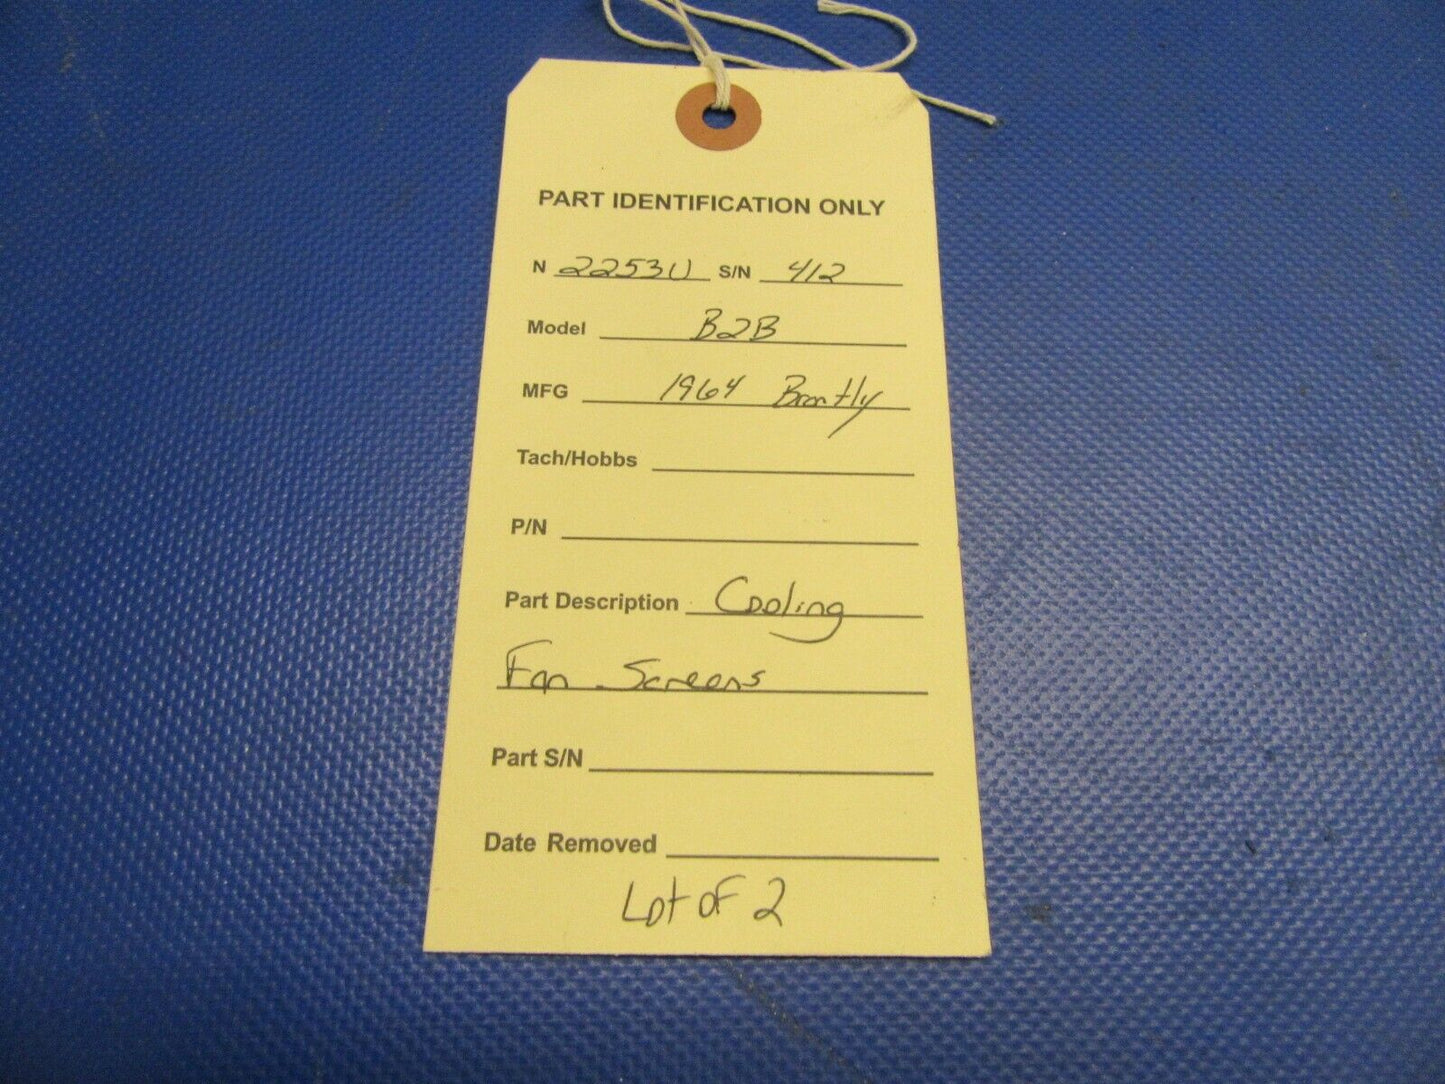 PART IDENTIFICATION ONLY
N 2253U S/N 412
Model B2B
MFG 1964 Brantly
Tach/Hobbs
P/N
Part Description Cooling
Fan Screens
Part S/N
Date Removed
Lot of 2